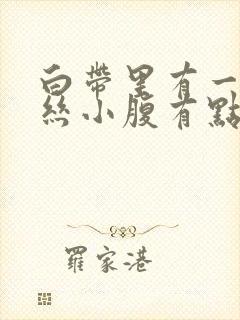 白帶里有一
絲小腹有點
羅家港